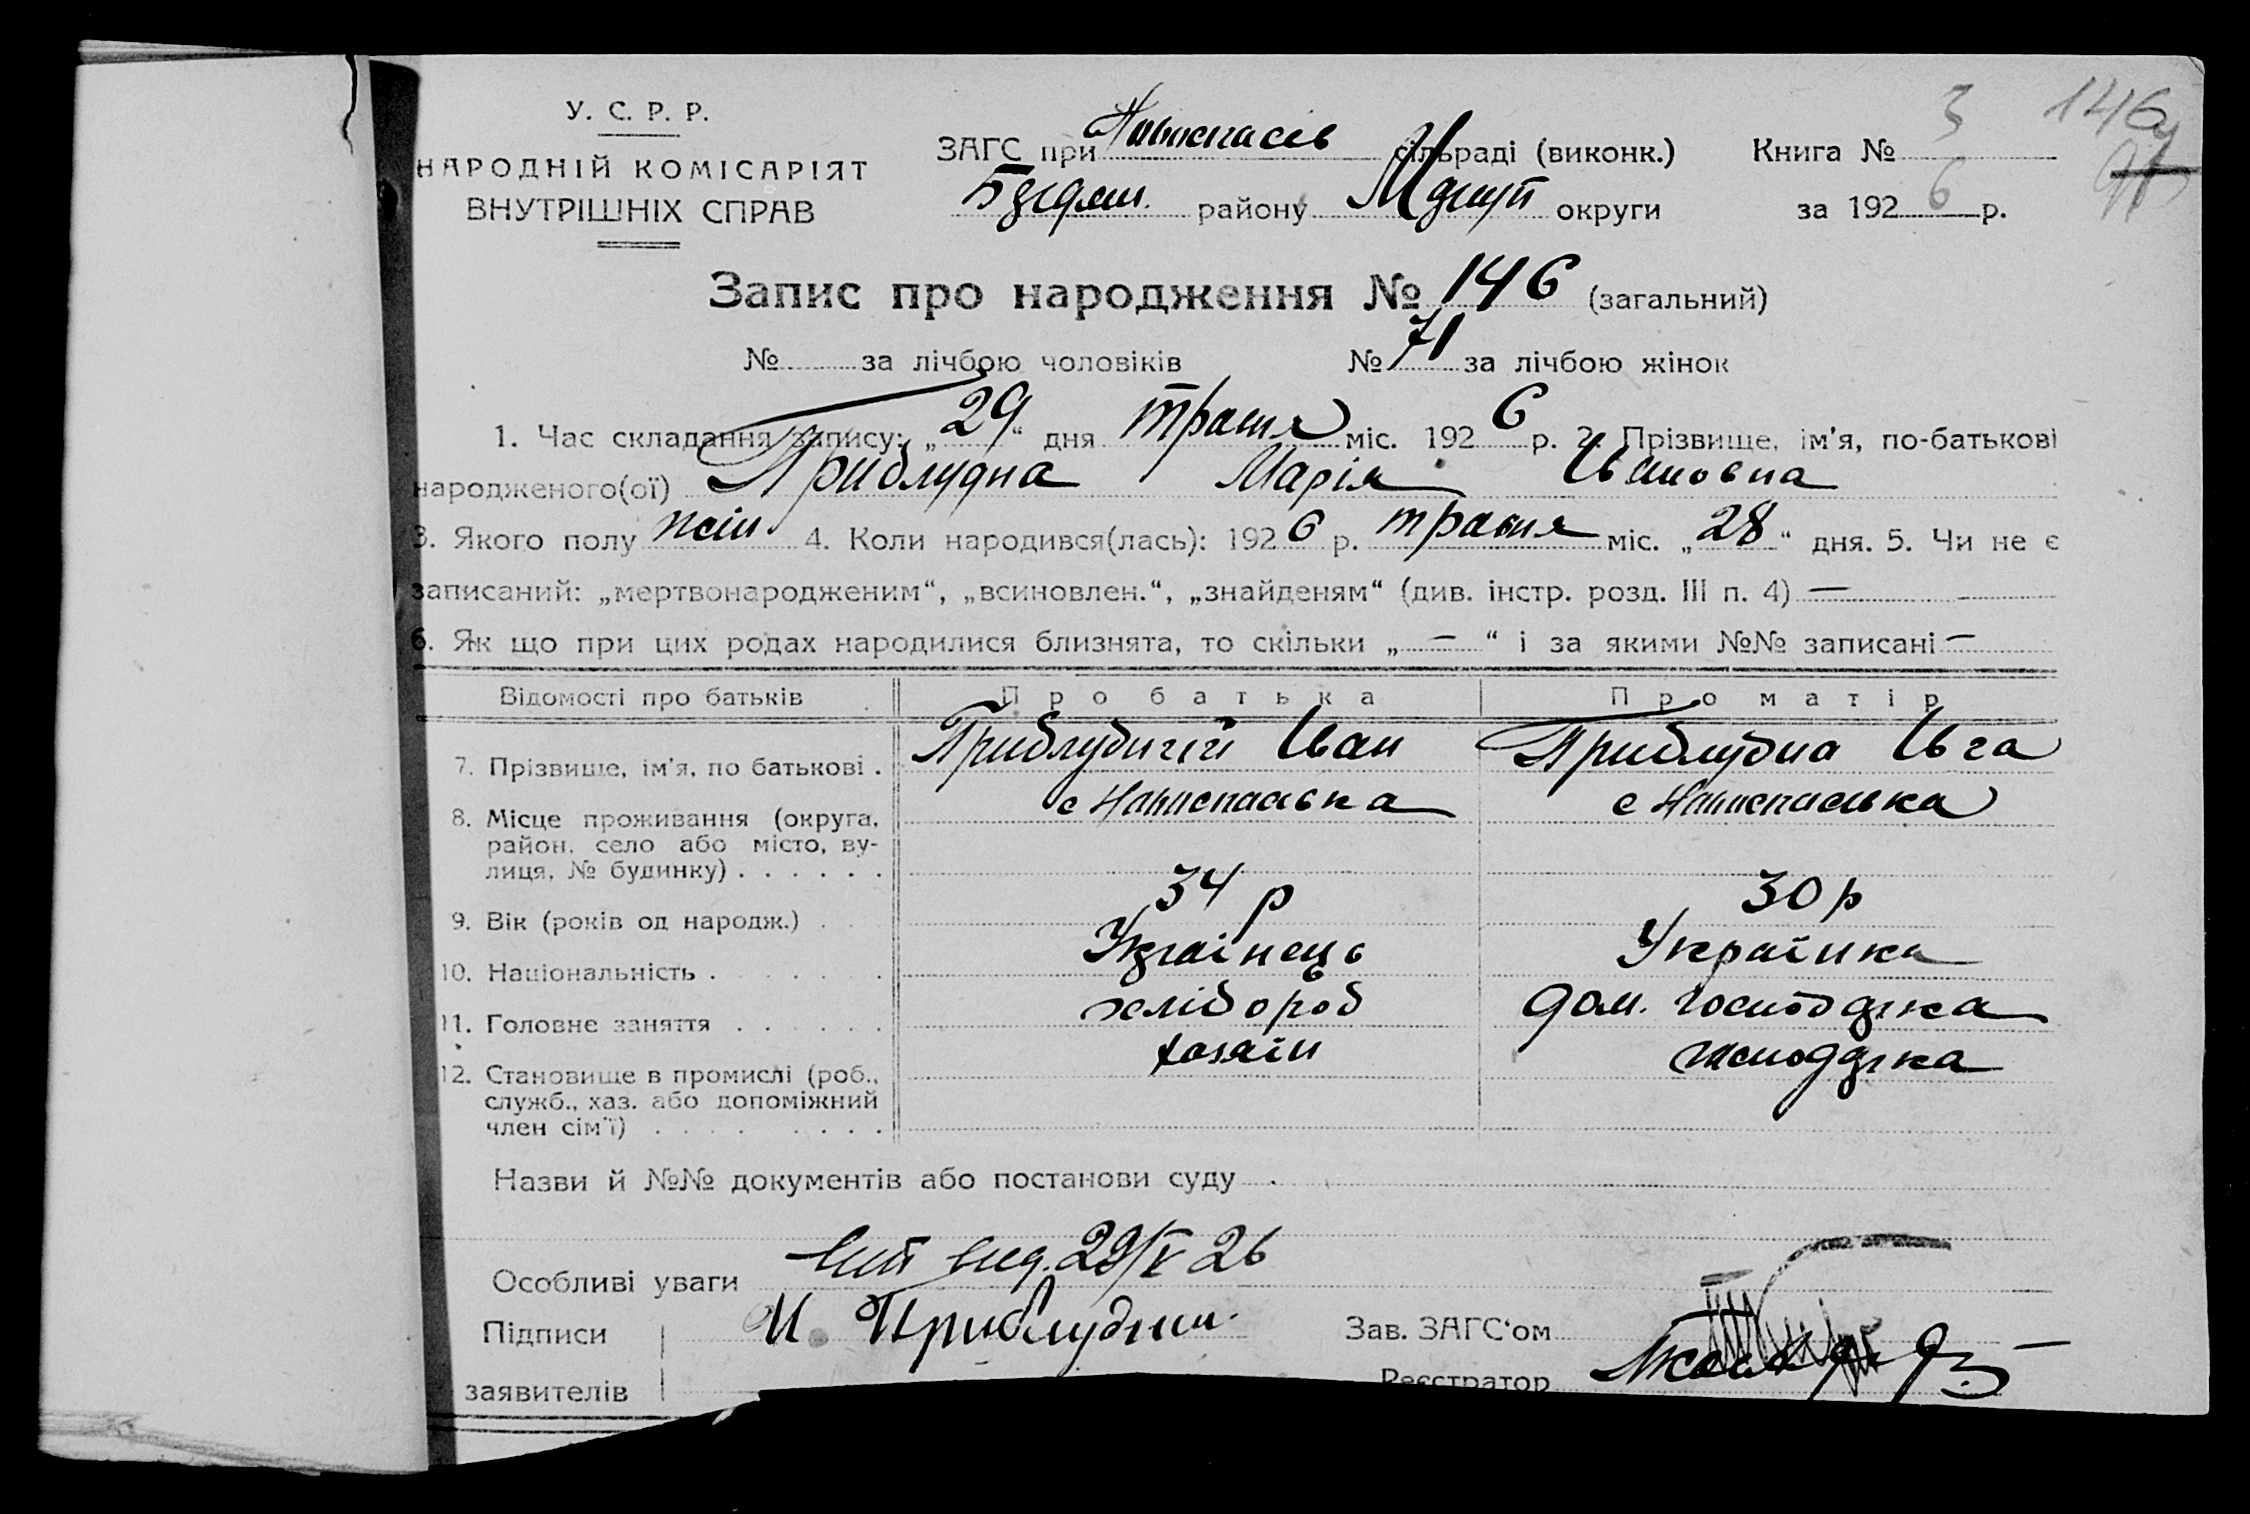 146
У. С. Р. Р.
НАРОДНІЙ КОМІСАРІЯТ
ВНУТРІШНІХ СПРАВ
ЗАГС при Новоспасів сільраді (виконк.)
району округи
Книга № 3
за 1926 р.
Запис про народження № 146 (загальний)
№ за лічбою чоловіків № 71 за лічбою жінок
1. Час складання запису: „29“ дня травня міс. 1926 р. 2. Прізвище, ім'я, по-батькові
народженого(ої) Приблудна Марія Івановна
3. Якого полу жін 4. Коли народився(лась): 1926 р. травня міс. „28“ дня. 5. Чи не є
записаний: „мертвонародженим“, „всиновлен.“, „знайденям“ (див. інстр. розд. III п. 4) —
6. Як що при цих родах народилися близнята, то скільки „—“ і за якими №№ записані —
Відомості про батьків Про батька Про матір
7. Прізвище, ім'я, по батькові . Приблудний Іван Приблудна Івга
8. Місце проживання (округа, район, село або місто, вулиця, № будинку) . . . . . . с Новоспасівка с Новоспасівка
9. Вік (років од народж.) . . 34 р 30 р
10. Національність . . . . . Українець Українка
11. Головне заняття . . . . . . хлібороб дом. господарка
12. Становище в промислі (роб., служб., хаз. або допоміжний член сім'ї) . . . . . . . . хазяїн господарка
Назви й №№ документів або постанови суду
Особливі уваги 29/V 26
Підписи И. Приблудний Зав. ЗАГС'ом
заявителів Реєстратор